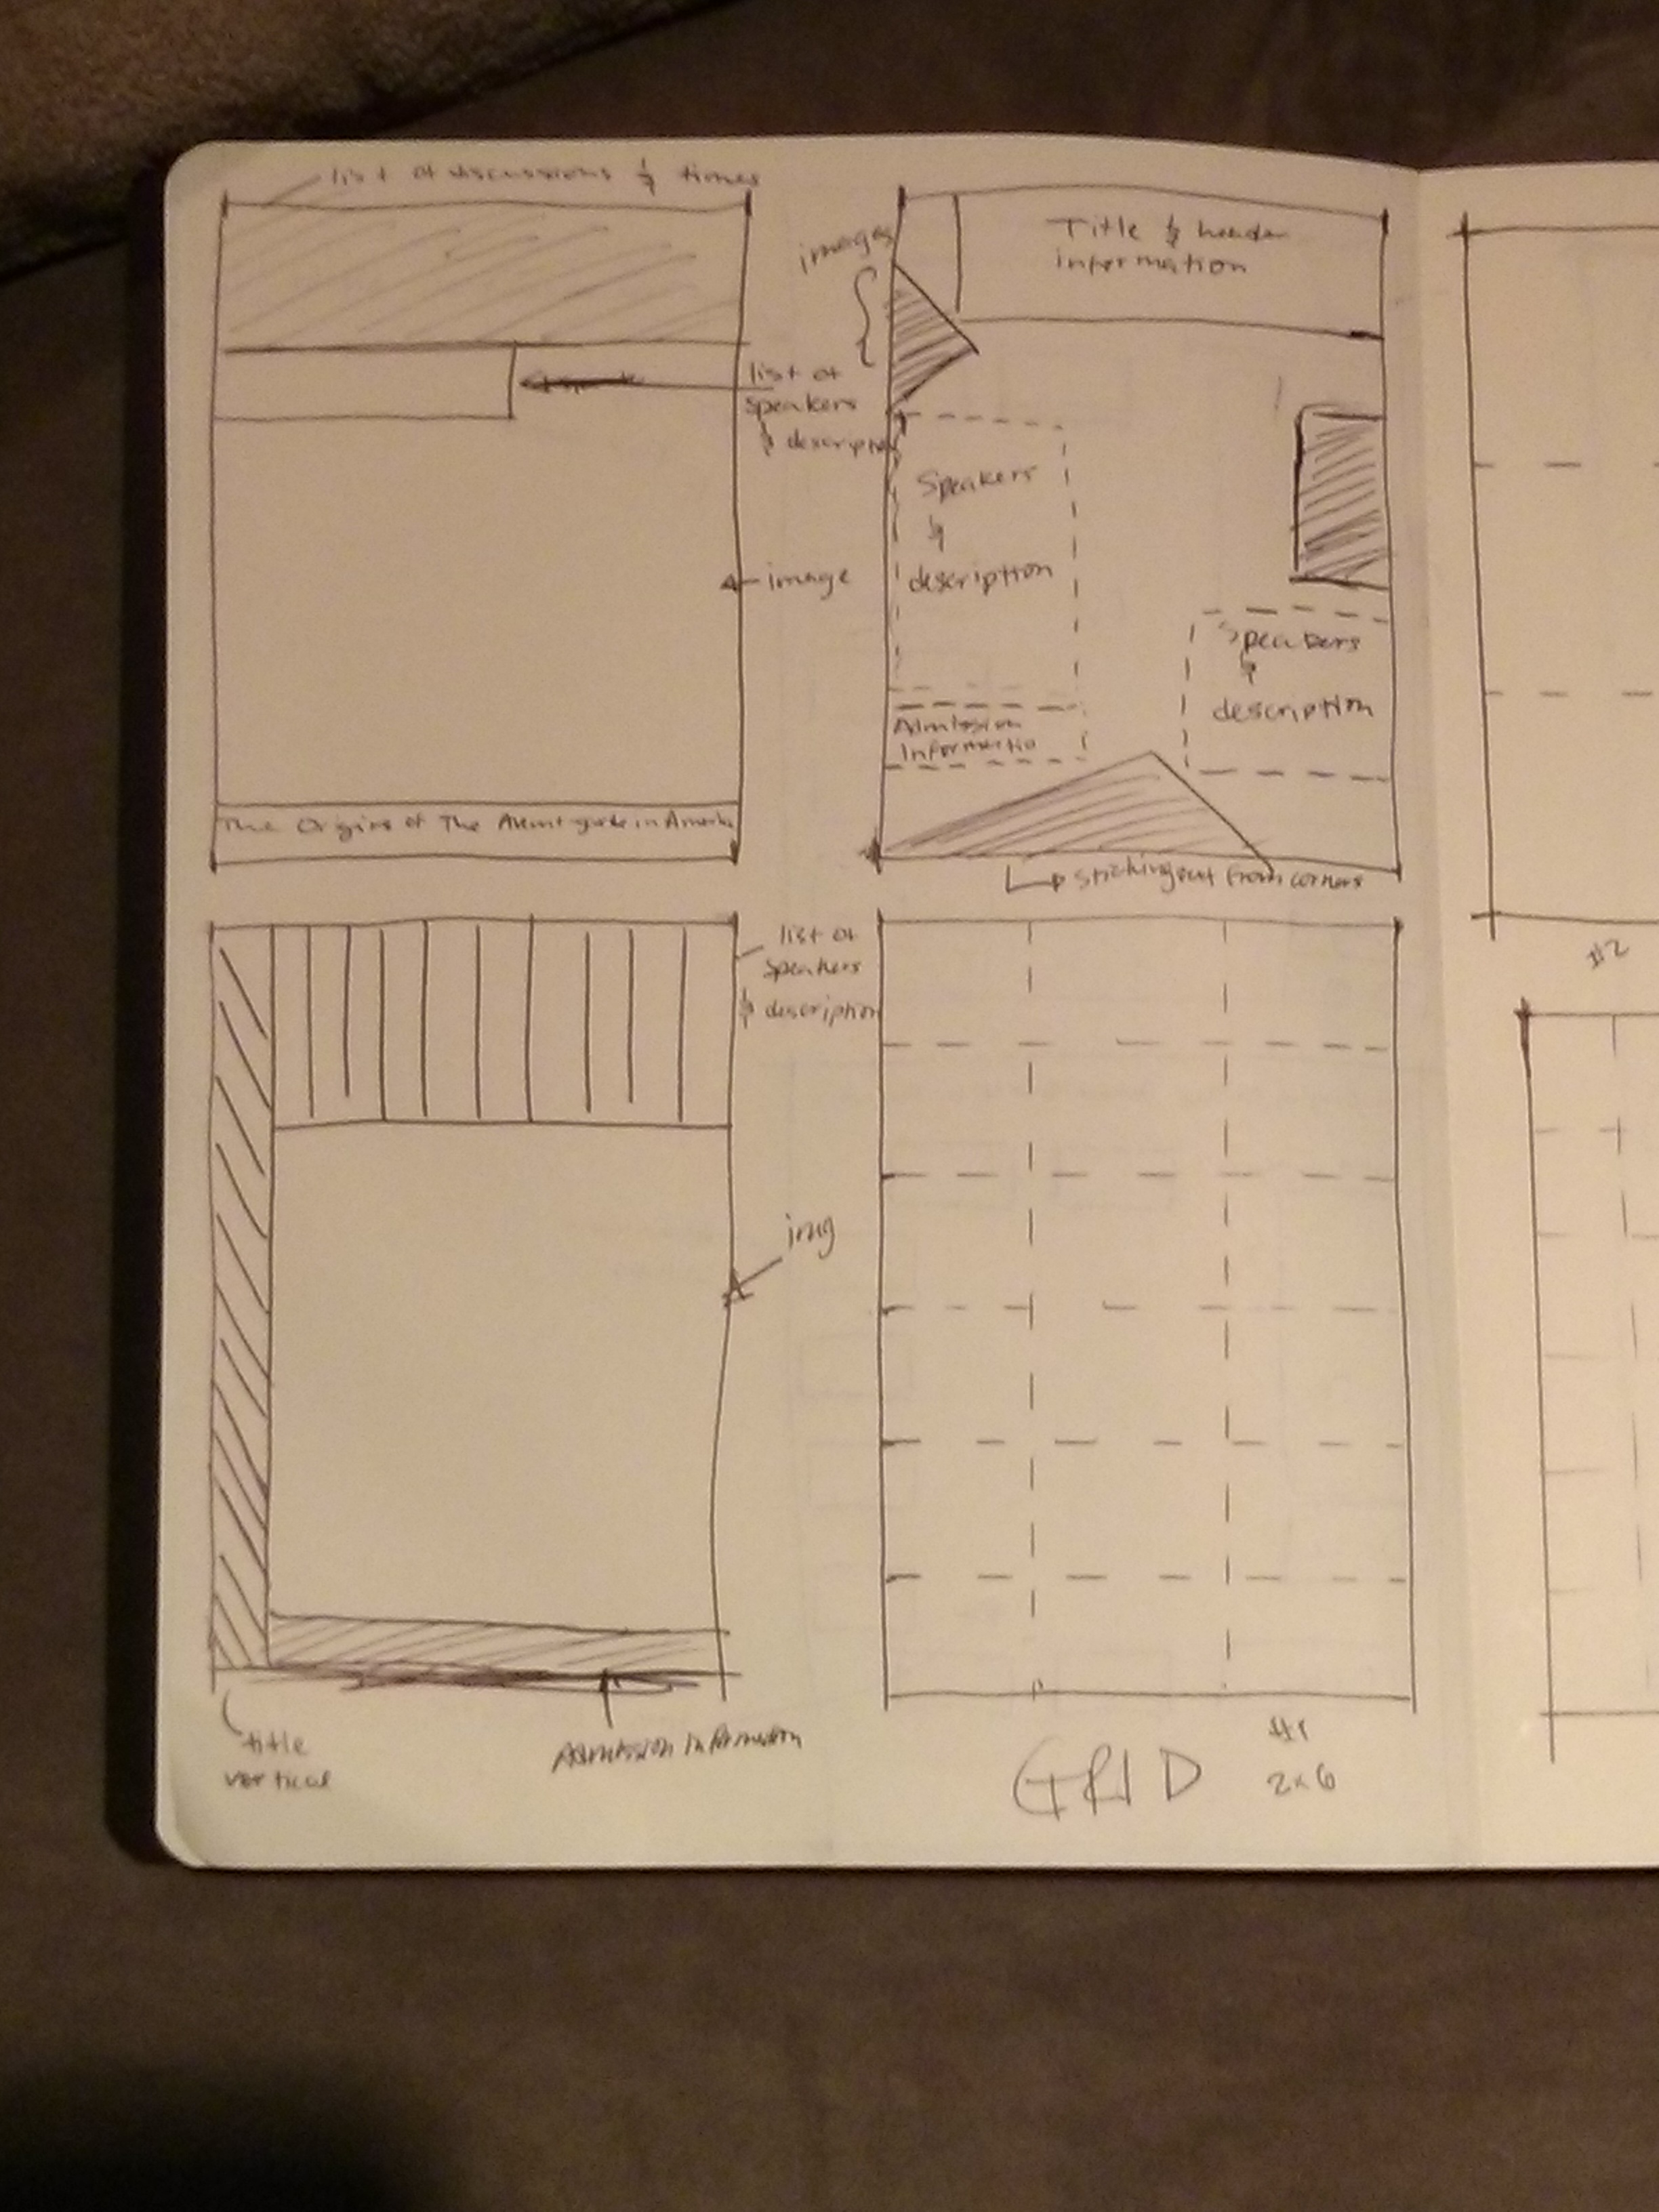 list of discussions & times
list of
speakers
& description
image
The Origins of The Avant-garde in America
images
Title & header
information
Speakers
&
description
Speakers
&
description
Admission
Informatio
sticking out from corners
list of
speakers
& description
img
title
vertical
Admission Information
GRID
#1
2x6
#2